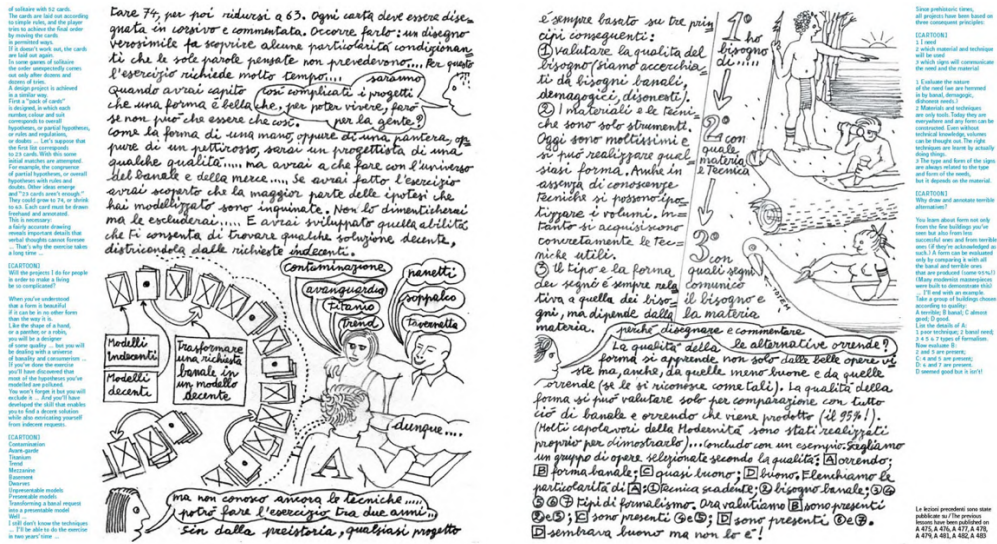 of solitaire with 52 cards.
The cards are laid out according
to simple rules, and the player
tries to achieve the final order
by moving the cards
in permitted ways.
If it doesn't work out, the cards
are laid out again.
In some games of solitaire
the order unexpectedly comes
out only after dozens and
dozens of tries.
A design project is achieved
in a similar way.
First a "pack of cards"
is designed, in which each
number, colour and suit
corresponds to overall
hypotheses, or partial hypotheses,
or rules and regulations,
or doubts ... Let's suppose that
the first list corresponds
to 23 cards. With this some
initial matches are attempted.
For example, the congruence
of partial hypotheses, or overall
hypotheses with rules and
doubts. Other ideas emerge
and "23 cards aren't enough."
They could grow to 74, or shrink
to 63. Each card must be drawn
freehand and annotated.
This is necessary:
a fairly accurate drawing
reveals important details that
verbal thoughts cannot foresee
... That's why the exercise takes
a long time ...
[CARTOON]
Will the projects I do for people
in order to make a living
be so complicated?
When you've understood
that a form is beautiful
if it can be in no other form
than the way it is.
Like the shape of a hand,
or a panther, or a robin,
you will be a designer
of some quality ... but you will
be dealing with a universe
of banality and consumerism ...
If you've done the exercise
you'll have discovered that
most of the hypotheses you've
modelled are polluted.
You won't forget it but you will
exclude it ... And you'll have
developed the skill that enables
you to find a decent solution
while also extricating yourself
from indecent requests.
[CARTOON]
Contamination
Avant-garde
Titanium
Trend
Mezzanine
Basement
Dwarves
Unpresentable models
Presentable models
Transforming a banal request
into a presentable model
Well ...
I still don't know the techniques
... I'll be able to do the exercise
in two years' time ...
tare 74, per poi ridursi a 63. Ogni carta deve essere dise=
gnata in corsivo e commentata. Occorre farlo: un disegno
verosimile fa scoprire alcune particolarità condizionan
ti che le sole parole pensate non prevedevono.... Per questo
l'esercizio richiede molto tempo....
saranno
così complicati i progetti
che, per poter vivere, farò
per la gente?
Quando avrai capito
che una forma è bella
se non può che essere che così.
come la forma di una mano, oppure di una pantera, op=
pure di un pettirosso, sarai un progettista di una
qualche qualità..... ma avrai a che fare con l'universo
del banale e della merce..... Se avrai fatto l'esercizio
avrai scoperto che la maggior parte delle ipotesi che
hai modellizzato sono inquinate. Non lo dimenticherai
ma le escluderai..... E avrai sviluppato quella abilità
che ti consenta di trovare qualche soluzione decente,
districandola dalle richieste indecenti.
contaminazione
avanguardia
titanio
trend
nanetti
soppalco
tavernetta
Modelli
Indecenti
Modelli
decenti
Trasformare
una richiesta
banale in
un modello
decente
dunque....
A
ma non conosco ancora le tecniche.....
potrò fare l'esercizio tra due anni...
Sin dalla preistoria, qualsiasi progetto
è sempre basato su tre prin
cipi conseguenti:
1) valutare la qualità del
bisogno (siamo accerchia=
ti da bisogni banali,
demagogici, disonesti).
2) I materiali e le tecni=
che sono solo strumenti.
Oggi sono moltissimi e
si può realizzare qual=
siasi forma. Anche in
assenza di conoscenze
tecniche si possono ipo=
tizzare i volumi. In=
tanto si acquisiscono
concretamente le tec=
niche utili.
3) Il tipo e la forma
dei segni è sempre rela
tiva a quella dei biso=
gni, ma dipende dalla
materia.
1°
ho
bisogno
di.....
2°
con
quale
materia
e Tecnica
3°
con
quali segni
comunico
il bisogno e
la materia
TOTEM
perchè disegnare e commentare
le alternative orrende?
La qualità della
forma si apprende, non solo dalle belle opere vi
ste ma, anche, da quelle meno buone e da quelle
orrende (se le si riconosce come tali). La qualità della
forma si può valutare solo per comparazione con tutto
ciò di banale e orrendo che viene prodotto (il 95%!).
(Molti capolavori della Modernità sono stati realizzati
proprio per dimostrarlo)...Concludo con un esempio: Scegliamo
un gruppo di opere selezionate secondo la qualità: A orrendo;
B forma banale; C quasi buono; D buono. Elenchiamo le
particolarità di A: 1 Tecnica scadente; 2 bisogno banale; 3 4
5 6 7 Tipi di formalismo. Ora valutiamo B sono presenti
2 e 5; C sono presenti 4 e 5; D sono presenti 6 e 7.
D sembrava buono ma non lo è!
Since prehistoric times,
all projects have been based on
three consequent principles:
[CARTOON]
1 I need
2 which material and technique
will be used
3 which signs will communicate
the need and the material
1 Evaluate the nature
of the need (we are hemmed
in by banal, demagogic,
dishonest needs.)
2 Materials and techniques
are only tools. Today they are
everywhere and any form can be
constructed. Even without
technical knowledge, volumes
can be thought out. The right
techniques are learnt by actually
doing things.
3 The type and form of the signs
are always related to the type
and form of the needs,
but it depends on the material.
[CARTOON]
Why draw and annotate terrible
alternatives?
You learn about form not only
from the fine buildings you've
seen but also from less
successful ones and from terrible
ones (if they're acknowledged as
such.) A form can be evaluated
only by comparing it with all
the banal and terrible ones
that are produced (some 95%!)
(Many modernist masterpieces
were built to demonstrate this)
... I'll end with an example.
Take a group of buildings chosen
according to quality:
A terrible; B banal; C almost
good; D good.
List the details of A:
1 poor technique; 2 banal need;
3 4 5 6 7 types of formalism.
Now evaluate B:
2 and 5 are present;
C: 4 and 5 are present;
D: 6 and 7 are present.
D seemed good but it isn't!
Le lezioni precedenti sono state
pubblicate su / The previous
lessons have been published on
A 475, A 476, A 477, A 478,
A 479, A 481, A 482, A 483